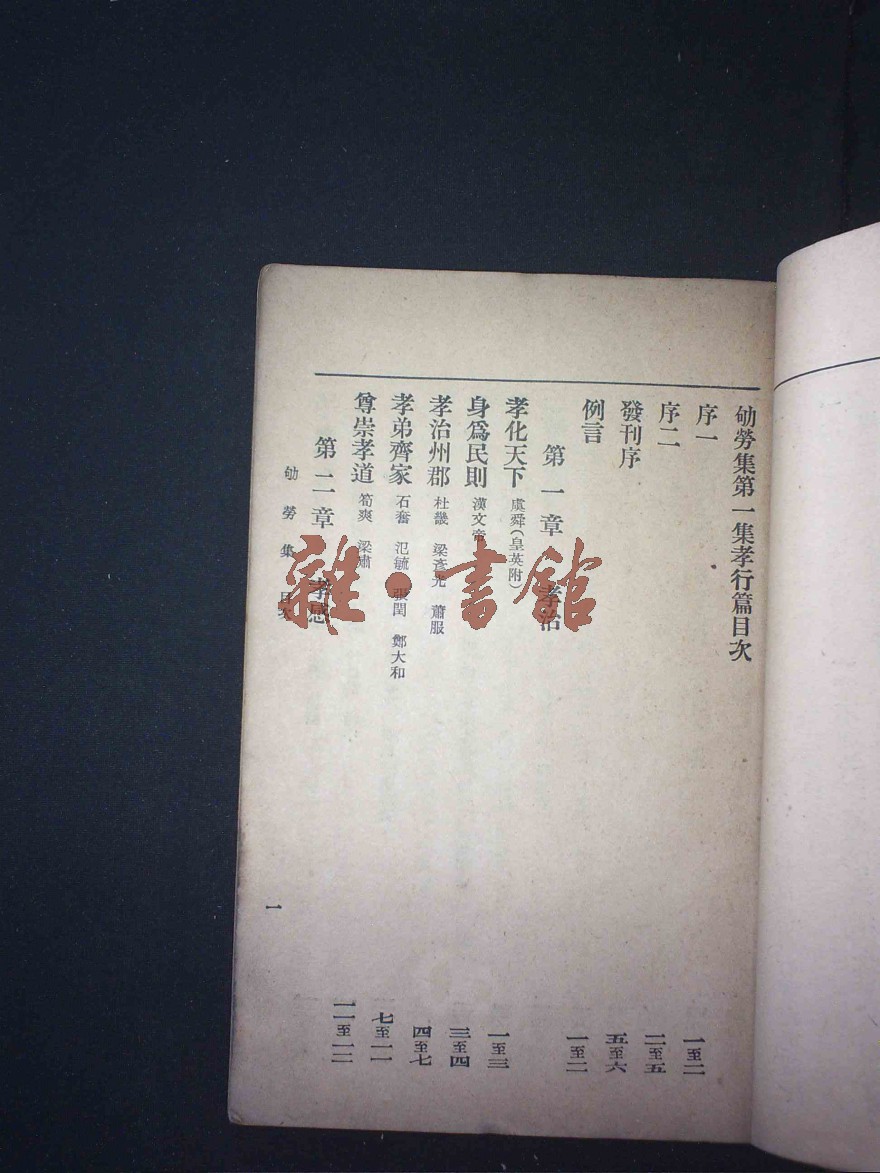 劬勞集第一集孝行篇目次
序一 一至二
序二 二至五
發刊序 五至六
例言 一至二
第一章 孝治
孝化天下 虞舜(皇英附) 一至三
身爲民則 漢文帝 三至四
孝治州郡 杜畿 梁彥光 蕭服 四至七
孝弟齊家 石奮 氾毓 張閏 鄭大和 七至一一
尊崇孝道 荀爽 梁肅 一一至一二
第二章 孝感
劬勞集 目次
一
雜·書館